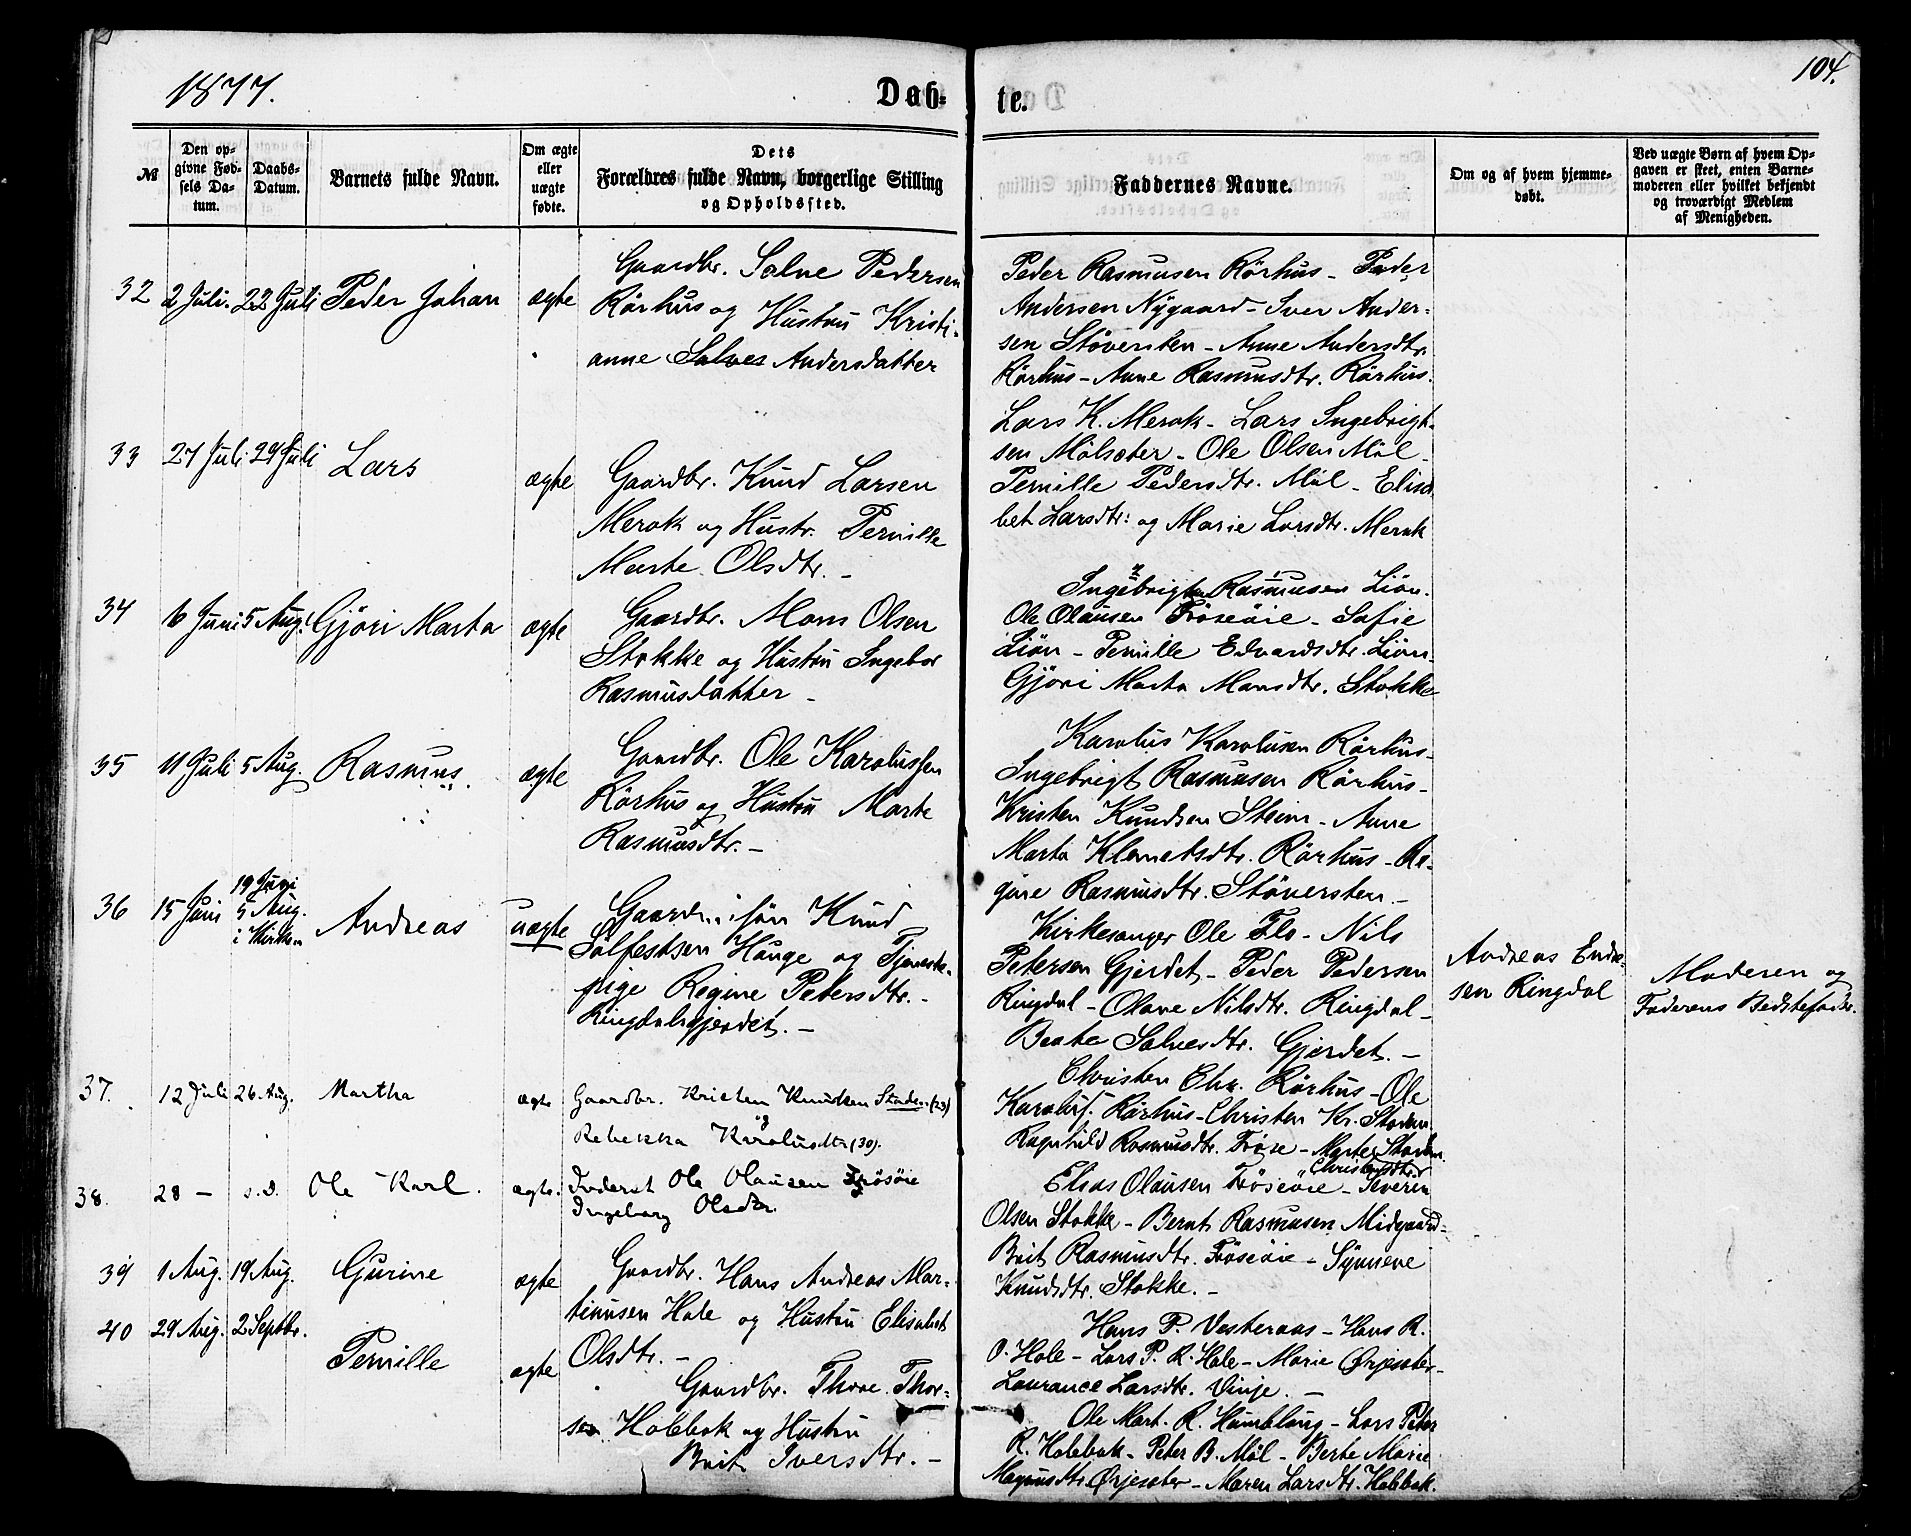 1877.
Døb-
te.
104.
№
Den op-
givne Fød-
sels Da-
tum.
Daabs-
Datum.
Barnets fulde Navn.
Om ægte
eller
uægte
fødte.
Dets
Forældres fulde Navn, borgerlige Stilling
og Opholdssted.
Faddernes Navne.
Om og af hvem hjemme-
døbt.
Ved uægte Børn af hvem Op-
gaven er skeet, enten Barne-
moderen eller hvilket bekjendt
og troværdigt Medlem
af Menigheden.
32 2 Juli. 22 Juli Peder Johan ægte
Gaardbr. Salve Pedersen
Rørhus og Hustru Kristi-
anne Salves Andersdatter
Peder Rasmusen Rørhus - Peder
Andersen Nygaard - Iver Ander-
sen Støversten - Anne Andersdtr.
Rørhus - Anne Rasmusdtr. Rørhus.
33 27 Juli 29 Juli Lars ægte
Gaardbr. Knud Larsen
Merok og Hustr. Pernille
Marte Olsdtr. -
Lars K. Merok - Lars Ingebrigt-
sen Mølsæter - Ole Olsen Møl -
Pernille Pedersdtr. Møl - Elisa
bet Larsdtr: og Marie Larsdtr. Merok
34 6 Juni 5 Aug. Gjøri Marta ægte
Gaardbr. Mons Olsen
Stokke og Hustru Ingebor
Rasmusdatter -
Ingebrigt Rasmusen Liøn.
Ole Olausen Frøseøie - Sofie
Liøn - Pernille Edvardsdtr. Liøn -
Gjøri Marta Monsdtr. Stokke
35 11 Juli 5 Aug. Rasmus. ægte
Gaardbr. Ole Karolussen
Rørhus og Hustru Marte
Rasmusdtr. -
Karolus Karolusen Rørhus -
Ingebrigt Rasmusen Rørhus -
Kristen Knudsen Steim - Anne
Marta Klemetsdtr. Rørhus - Re-
gine Rasmusdtr. Støversten. -
36 15 Juni 19 Juni
5 Aug.
i Kirken
Andreas uægte
Søn Knud
Sølfestsen Hauge og Tjeneste-
pige Regine Petersdtr. -
Ringdalsgjerdet. -
Kirkesanger Ole Flo - Nils
Petersen Gjerdet - Peder Pedersen
Ringdal - Olave Nilsdtr. Ringdal -
Beate Salvesdtr. Gjerdet. -
Andreas Endre-
sen Ringdal
Moderen og
Faderens Bedstefader.
37. 12 Juli 26 Aug. Martha ægte
Gaardbr. Kristen Knudsen
og
Rebekka Karolusdtr (30).
Christen Rørhus - Ole
Karolus. Rørhus - Christen Kr.
Ragnhild Rasmusdtr. Frøse - Marte
Christensdtr
38. 28 - s.D. Ole Karl. ægte.
Inderst Ole Olausen Frøsøie
Ingeborg Olsdtr.
Elias Olausen Frøseøie - Severin
Olsen Stokke - Bernt Rasmusen Midgaard -
Brit Rasmusdtr. Frøseøie - Synneve
Knudsdtr. Stokke. -
39 1 Aug. 19 Aug. Gurine ægte
Gaardbr. Hans Andreas Mar-
tinusen Hole og Hustru Elisabet
Olsdtr. -
Hans P. Vesteraas - Hans R.
O. Hole - Lars P. R. Hole - Marie Ørjesæter -
Laurance Larsdtr. Vinje. -
40 29 Aug. 2 Septbr. Pernille ægte
Gaardbr. Thore Thor-
sen Holebok og Hustru
Brit Iversdtr. -
Ole Mart. R. Humblung - Lars Peter
R. Holebok - Peter B. Møl - Berte Marie
Magnusdtr. Ørjesæter - Maren Larsdtr. Holebok.